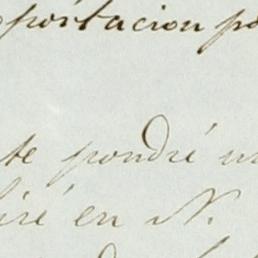 portacion po
te pondré un
iré en N.